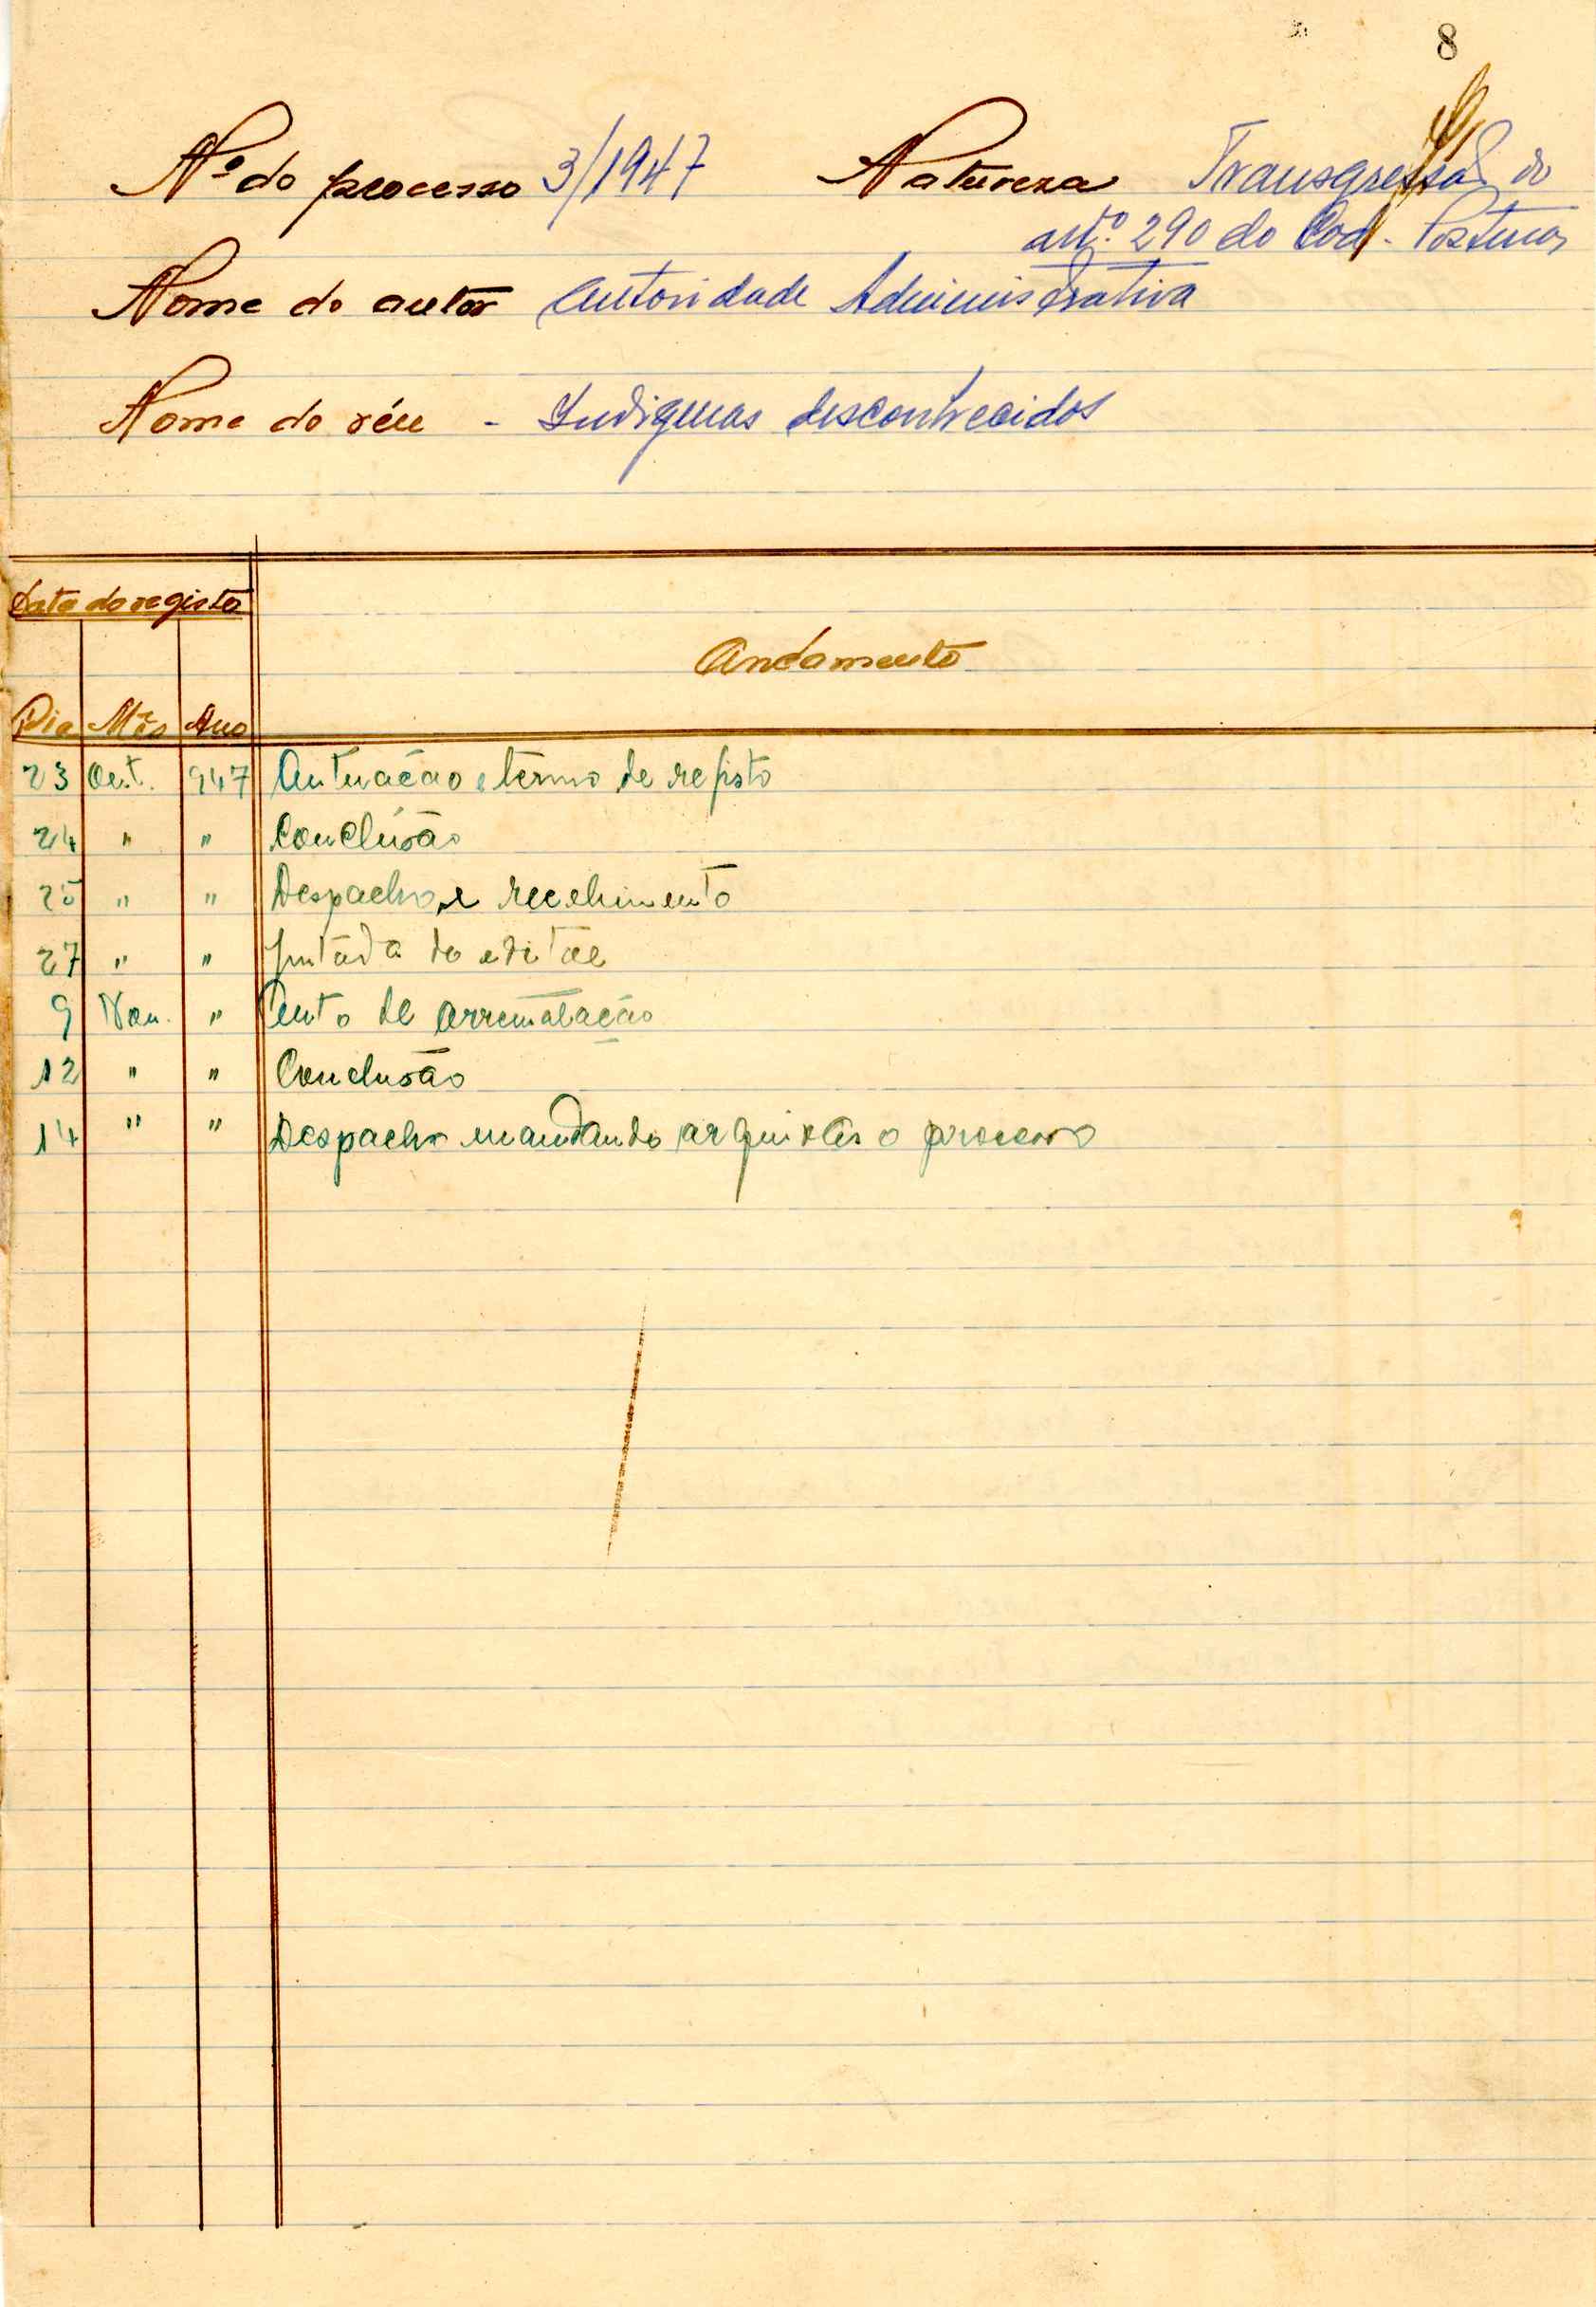 8
Nº do processo 3/1947 Natureza Transgressão do
artº. 290 do Cod. Posturas
Nome do autor Autoridade Administrativa
Nome do réu - Indigenas desconhecidos
Data do registo
Andamento
Dia Mês Ano
23 Out. 947 Autuação e termo de registo
24 " " Conclusão
25 " " Despacho e recebimento
27 " " Juntada do edital
9 Nov. " Auto de arrematação
12 " " Conclusão
14 " " Despacho mandando arquivar o processo